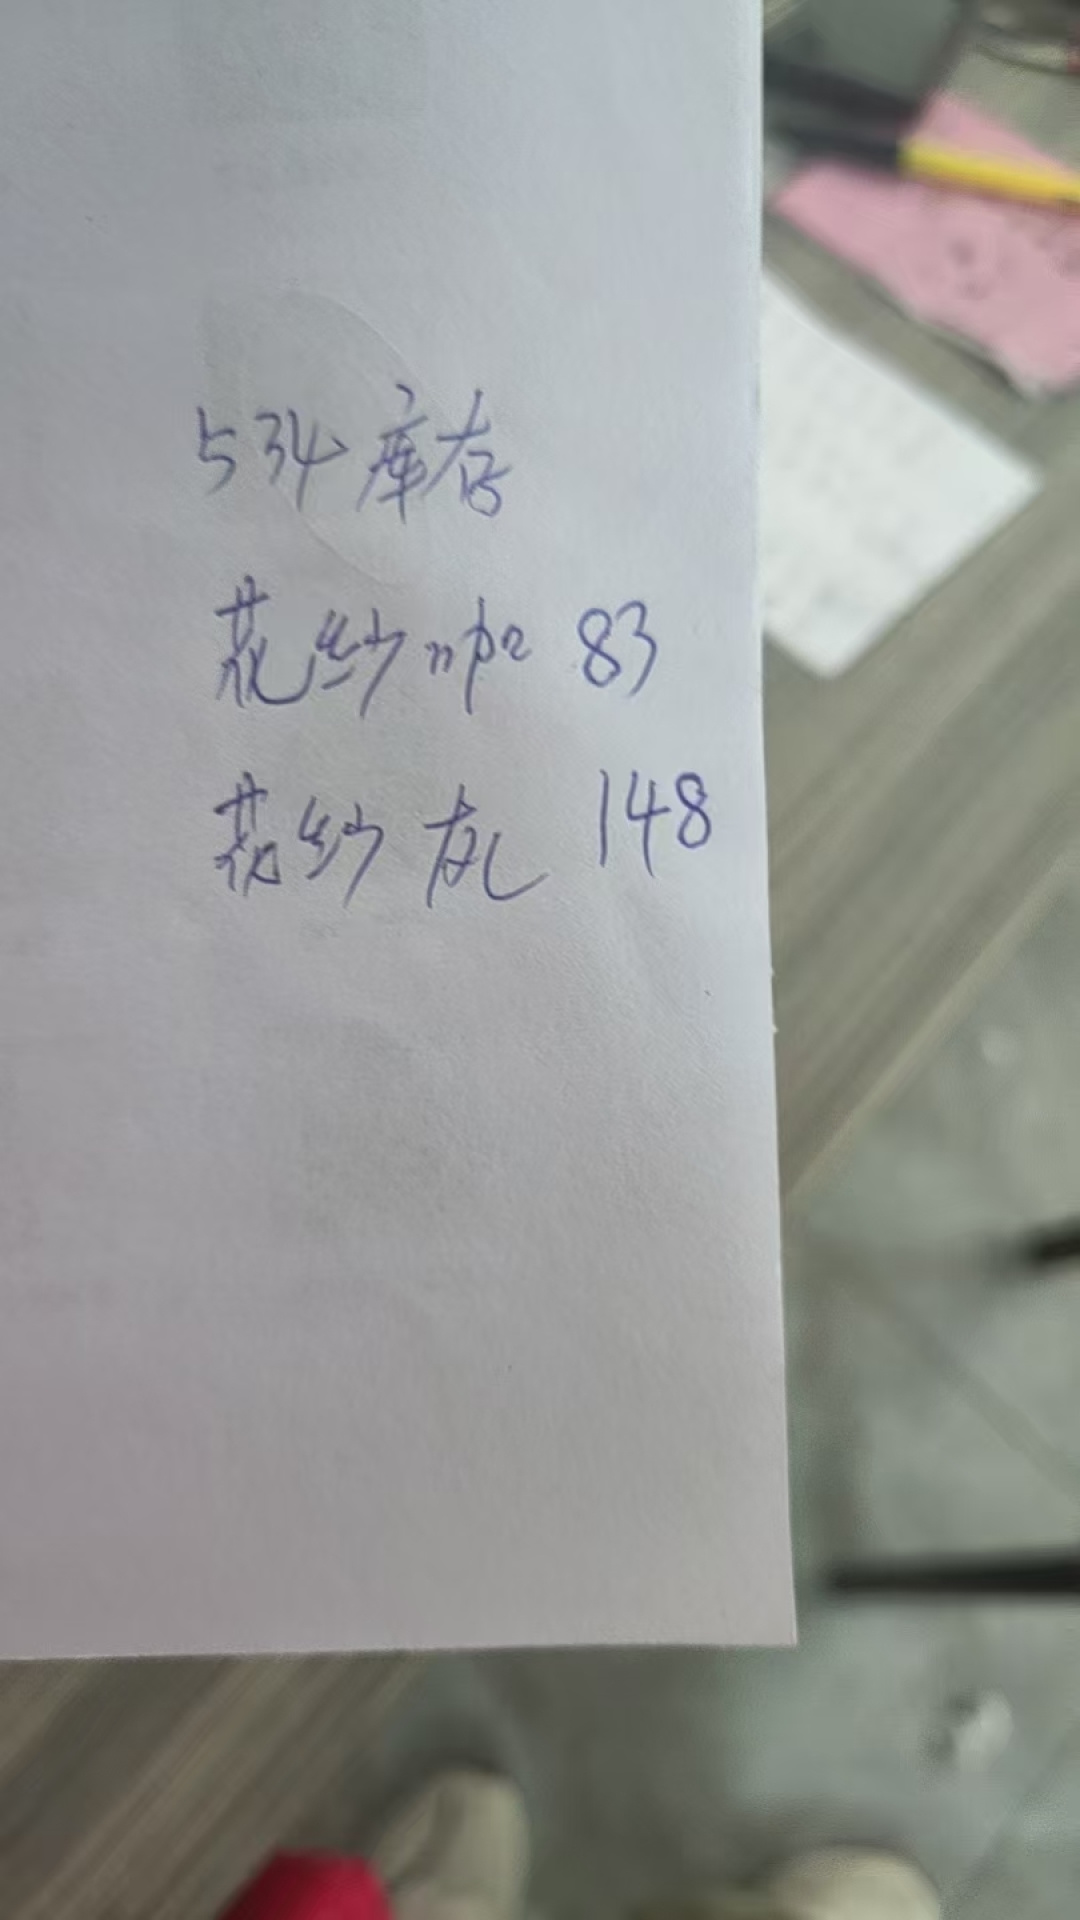 534库存
花纱咖 83
花纱灰 148